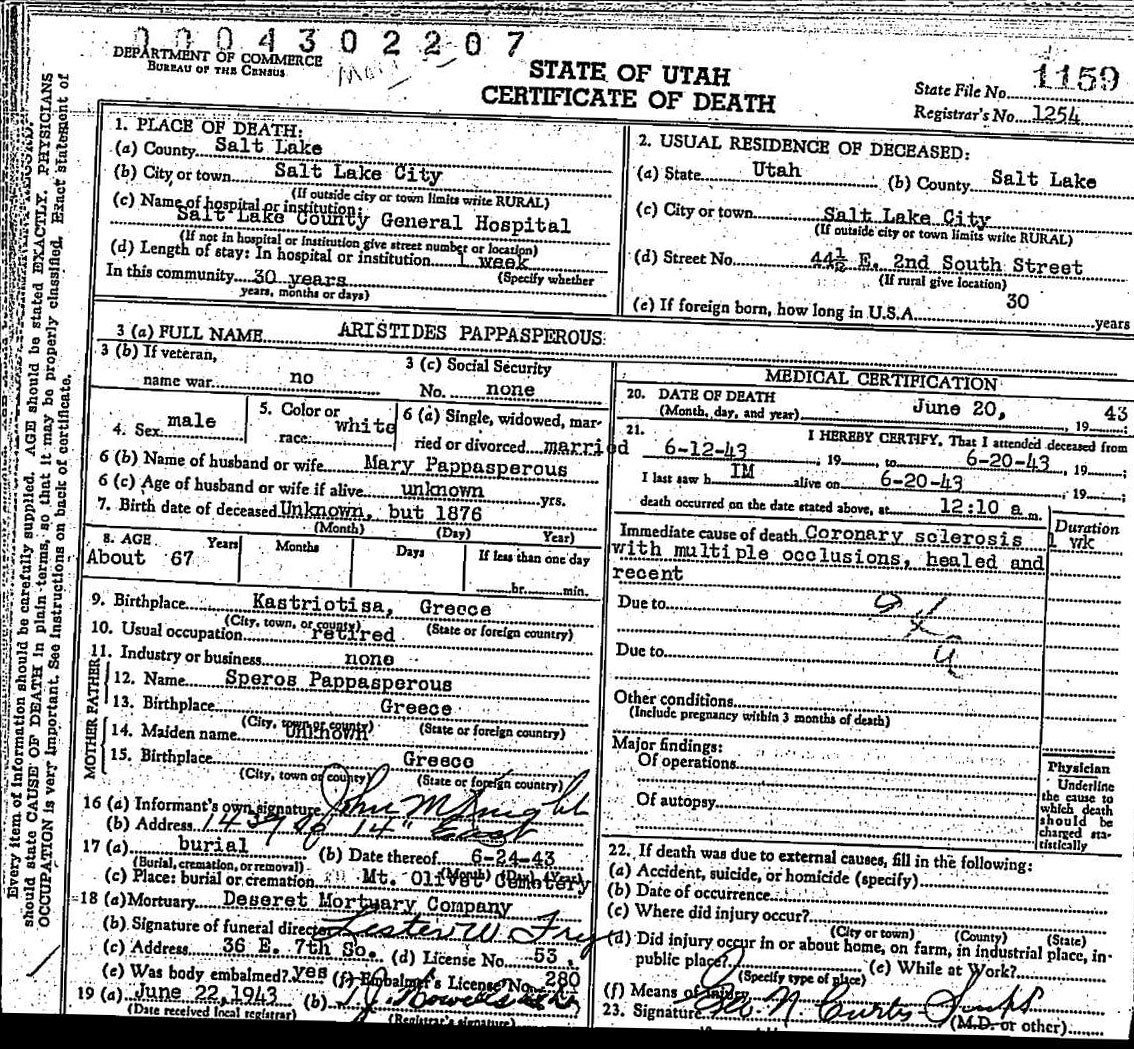 0004302207
DEPARTMENT OF COMMERCE
BUREAU OF THE CENSUS
STATE OF UTAH
CERTIFICATE OF DEATH
State File No. 1159
Registrar's No. 1254
Every item of information should be carefully supplied. AGE should be stated EXACTLY. PHYSICIANS
should state CAUSE OF DEATH in plain terms, so that it may be properly classified. Exact statement of
OCCUPATION is very important. See instructions on back of certificate.
1. PLACE OF DEATH:
(a) County Salt Lake
(b) City or town Salt Lake City
(If outside city or town limits write RURAL)
(c) Name of hospital or institution:
Salt Lake County General Hospital
(If not in hospital or institution give street number or location)
(d) Length of stay: In hospital or institution 1 week
(Specify whether
In this community 30 years
years, months or days)
2. USUAL RESIDENCE OF DECEASED:
(a) State Utah (b) County Salt Lake
(c) City or town Salt Lake City
(If outside city or town limits write RURAL)
(d) Street No. 44½ E. 2nd South Street
(If rural give location)
(e) If foreign born, how long in U.S.A. 30 years
3 (a) FULL NAME ARISTIDES PAPPASPEROUS
3 (b) If veteran,
name war no
3 (c) Social Security
No. none
4. Sex male
5. Color or
race white
6 (a) Single, widowed, mar-
ried or divorced married
6 (b) Name of husband or wife Mary Pappasperous
6 (c) Age of husband or wife if alive unknown yrs.
7. Birth date of deceased Unknown, but 1876
(Month) (Day) Year)
8. AGE Years Months Days If less than one day
About 67 hr. min.
9. Birthplace Kastriotisa, Greece
(City, town, or county) (State or foreign country)
10. Usual occupation retired
11. Industry or business none
FATHER
12. Name Speros Pappasperous
13. Birthplace Greece
(City, town or county) (State or foreign country)
MOTHER
14. Maiden name Unknown
15. Birthplace Greece
(City, town or county) (State or foreign country)
16 (a) Informant's own signature John M
(b) Address 14" East
17 (a) burial (b) Date thereof 6-24-43
(Burial, cremation, or removal) (Month) (Day) (Year)
(c) Place: burial or cremation Mt. Olivet Cemetery
18 (a) Mortuary Deseret Mortuary Company
(b) Signature of funeral director Lester W Fry
(c) Address 36 E. 7th So. (d) License No. 53
(e) Was body embalmed? yes (f) Embalmer's License No. 280
19 (a) June 22, 1943 (b)
(Date received local registrar) (Registrar's signature)
MEDICAL CERTIFICATION
20. DATE OF DEATH
(Month, day, and year) June 20, 19 43
21. I HEREBY CERTIFY, That I attended deceased from
6-12-43, 19 to 6-20-43, 19 ;
I last saw h IM alive on 6-20-43, 19 ;
death occurred on the date stated above, at 12:10 a m.
Duration
Immediate cause of death Coronary sclerosis 1 wk
with multiple occlusions, healed and
recent
Due to
Due to
Other conditions
(Include pregnancy within 3 months of death)
Major findings:
Of operations
Of autopsy
Physician
Underline
the cause to
which death
should be
charged sta-
tistically
22. If death was due to external causes, fill in the following:
(a) Accident, suicide, or homicide (specify)
(b) Date of occurrence
(c) Where did injury occur?
(City or town) (County) (State)
(d) Did injury occur in or about home, on farm, in industrial place, in
public place?
(Specify type of place) (e) While at Work?
(f) Means of injury
23. Signature N. Curtis
(M.D. or other)